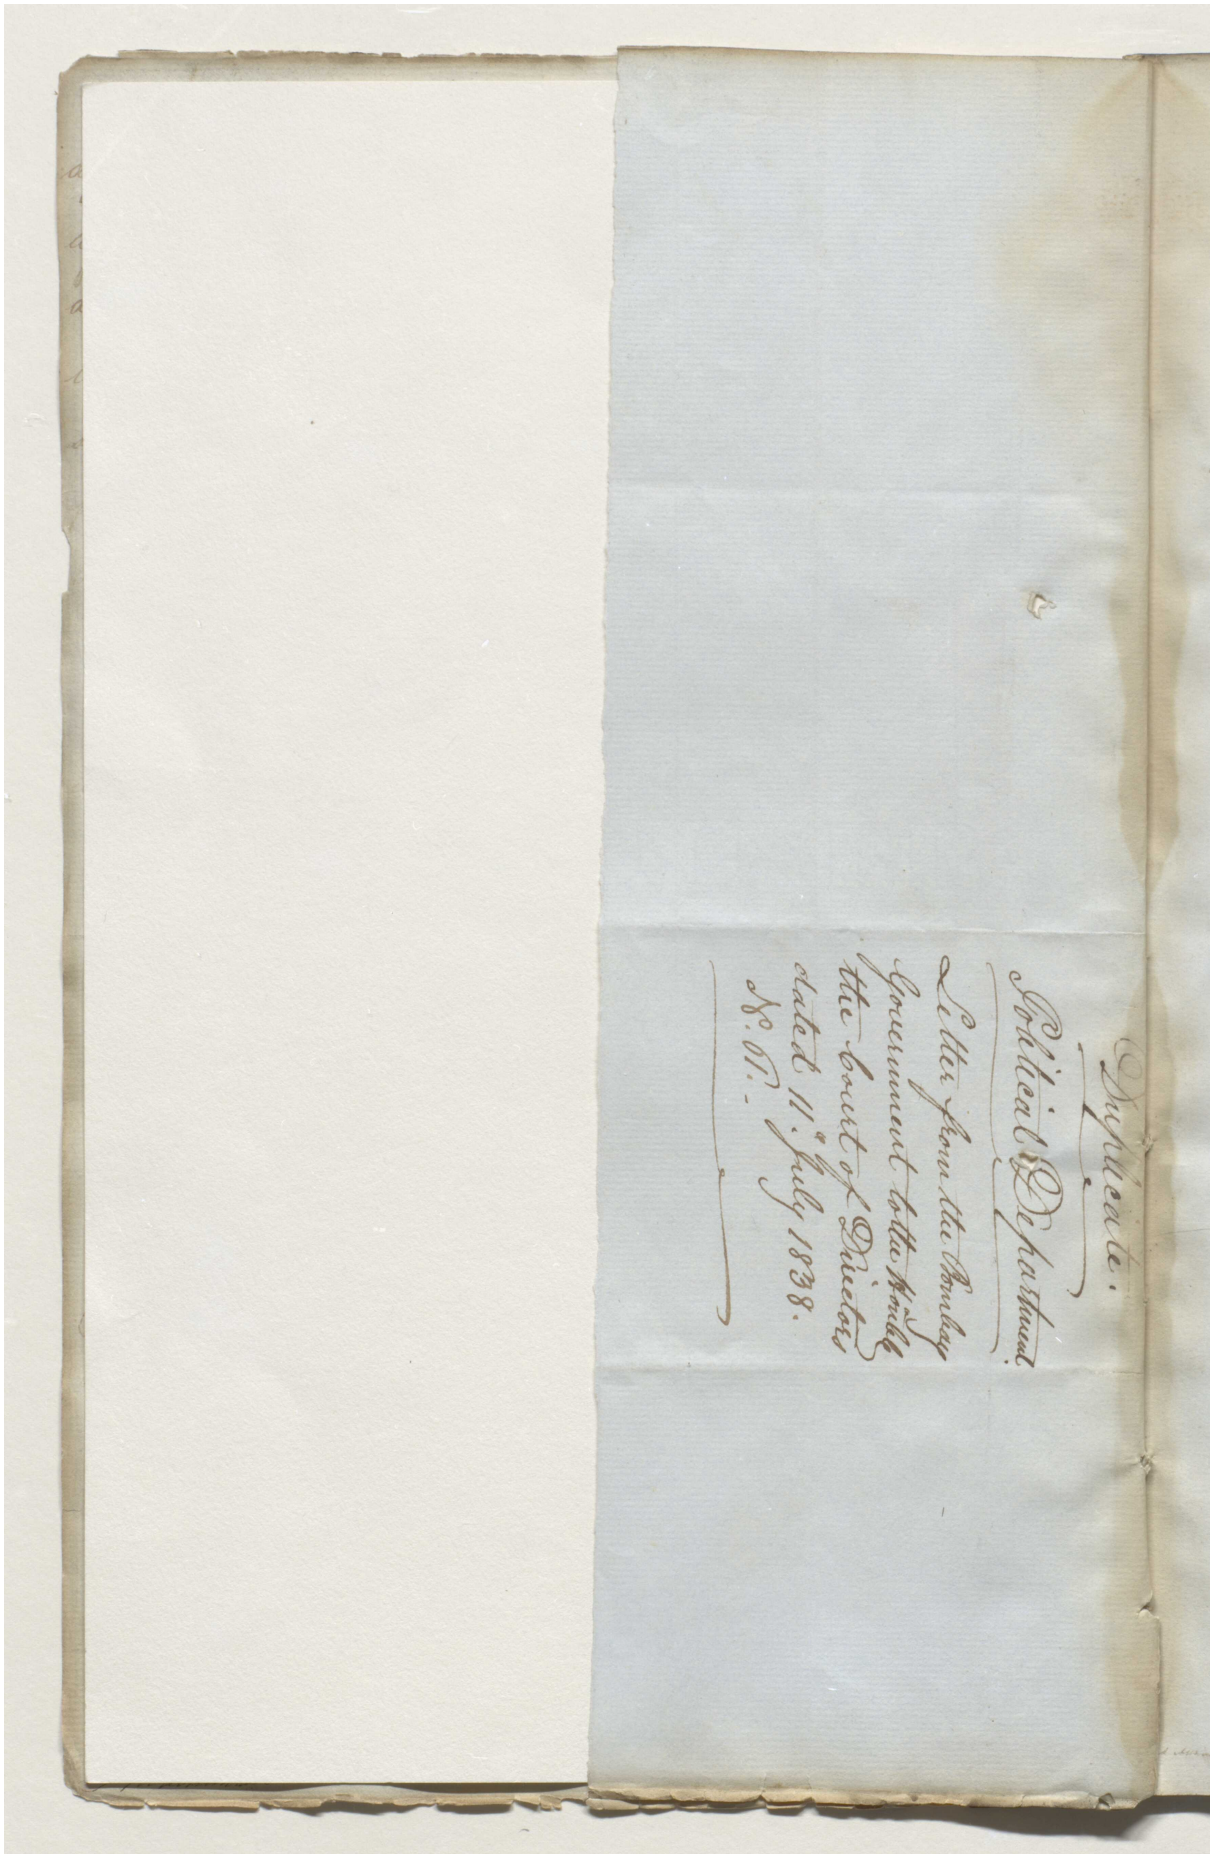 Duplicate.
Political Department.
Letter from the Bombay
Government to the Honble
the Court of Directors
dated 11th July 1838.